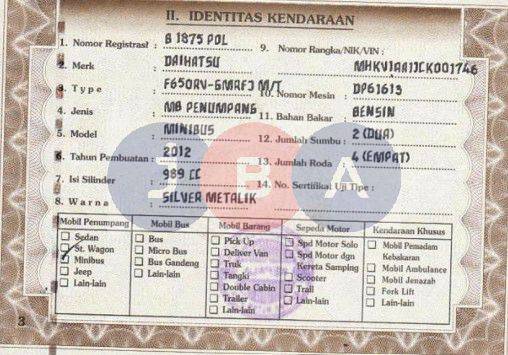 II. IDENTITAS KENDARAAN
1. Nomor Registrasi : B 1875 POL
2. Merk : DAIHATSU
3. Type : F650RV-GMRFJ M/T
4. Jenis : MB PENUMPANG
5. Model : MINIBUS
6. Tahun Pembuatan : 2012
7. Isi Silinder : 989 CC
8. Warna : SILVER METALIK
9. Nomor Rangka/NIK/VIN :
MHKV1AA1JCK001746
10. Nomor Mesin : DP61613
11. Bahan Bakar : BENSIN
12. Jumlah Sumbu : 2 (DUA)
13. Jumlah Roda : 4 (EMPAT)
14. No. Sertifikat Uji Tipe :
BA
Mobil Penumpang
Sedan
St. Wagon
Minibus
Jeep
Lain-lain
Mobil Bus
Bus
Micro Bus
Bus Gandeng
Lain-lain
Mobil Barang
Pick Up
Deliver Van
Truk
Tangki
Double Cabin
Trailer
Lain-lain
Sepeda Motor
Spd Motor Solo
Spd Motor dgn
Kereta Samping
Scooter
Trail
Lain-lain
Kendaraan Khusus
Mobil Pemadam
Kebakaran
Mobil Ambulance
Mobil Jenazah
Fork Lift
Lain-lain
3